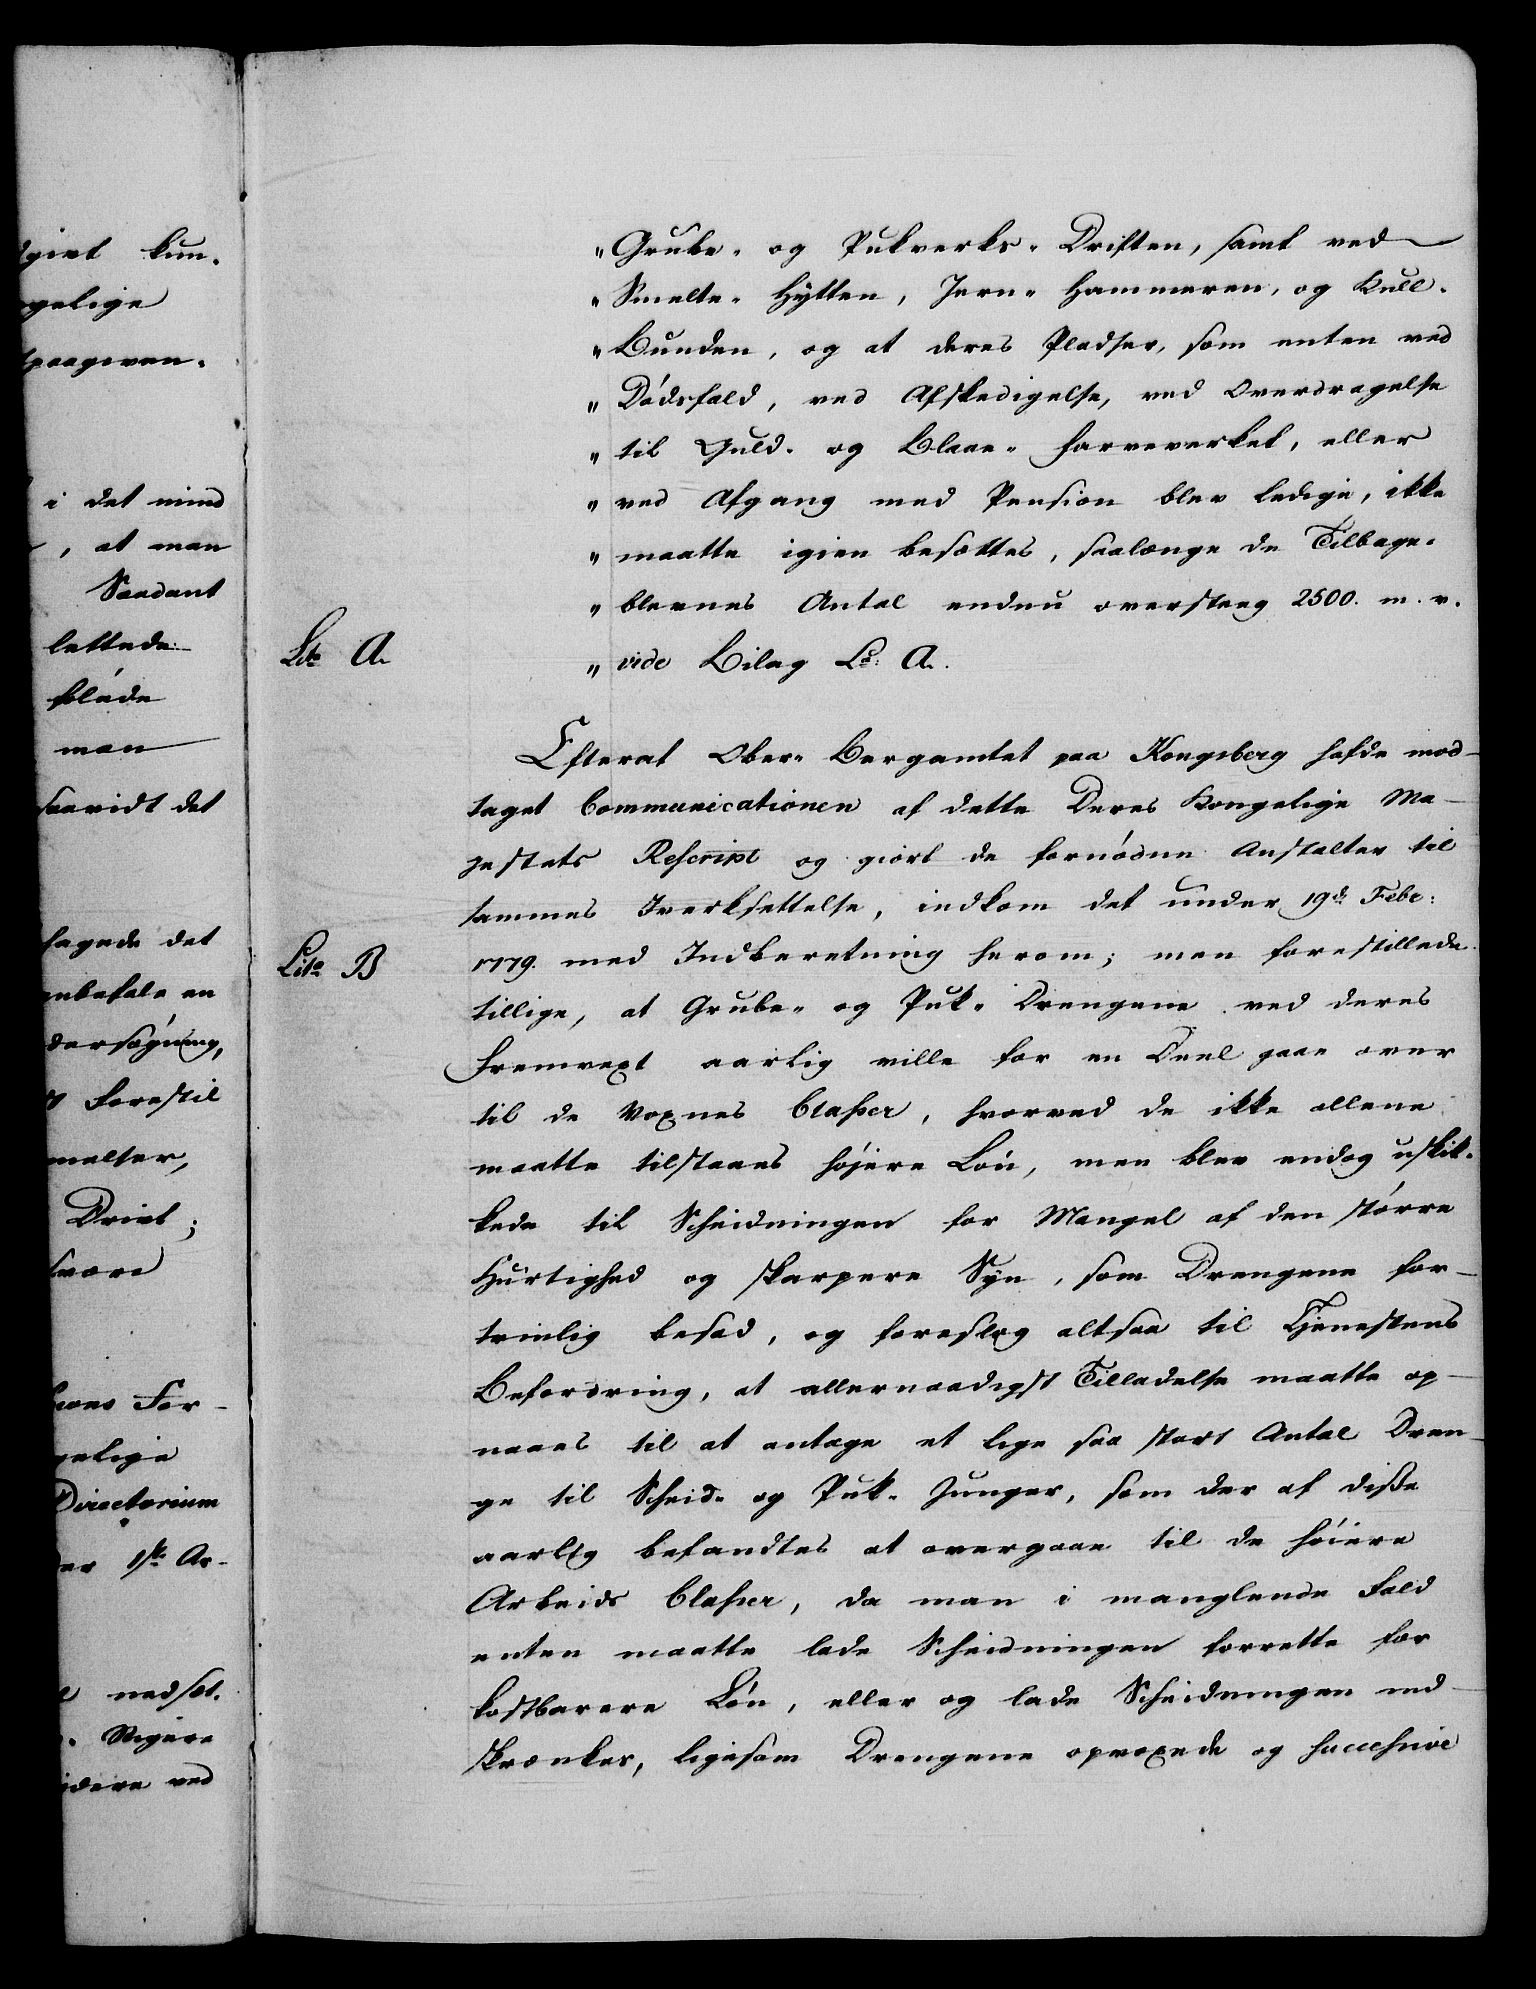 giet kun-
gelige
paagren-
i det mind
, at man
Saadant
lettede
man
saavidt det
fagede det
anbefale en
dersøgning,
Forestil
melser,
Drivt;
svære
For-
gelige
Directorium
er 1ste Ar-
nedsat.
videre ved
" Grube- og Pukverks- Driften, samt ved
" Smelte- Hytten, Jern- Hammeren, og Kull-
" Bunden, og at deres Pladser, som enten ved
" Dødsfald, ved Afskedigelse, ved Overdragelse
" til Guld- og Blaae- Farveverket, eller
" ved Afgang med Pension blev ledige, ikke
" maatte igien besættes, saalænge de Tilbage-
" blevnes Antal endnu oversteeg 2500. m. v.
Lit. A.
" vide Bilag Lit: A.
Efterat Ober- Bergamtet paa Kongsberg hafde mod-
taget Communicationen af dette Deres Kongelige Ma-
jestets Rescript og giort de fornødne Anstalter til
sammes Iverksettelse, indkom det under 19de Febr:
Lito B
1779. med Indberetning herom; men forestillede
tillige, at Grube- og Puk- Drengene ved deres
Fremvext aarlig ville for en Deel gaae over
til de Voxnes Classer, hvorved de ikke allene
maatte tilstaaes højere Løn, men blev endog uskik-
kede til Scheidningen for Mangel af den større
Hurtighed og skarpere Syn, som Drengene for-
trinlig besad, og foreslog altsaa til Tjenestens
Befordring, at allernaadigst Tilladelse maatte op-
naaes til at antage et lige saa stort Antal Dren-
ge til Scheid- og Puk- Junger, som der af disse
aarlig befandtes at overgaae til de høiere
Arbeids Classer, da man i manglende Fald
enten maatte lade Scheidningen forrette for
kostbarere Løn, eller og lade Scheidningen ind-
skrænkes, ligesom Drengene opvoxede og successive